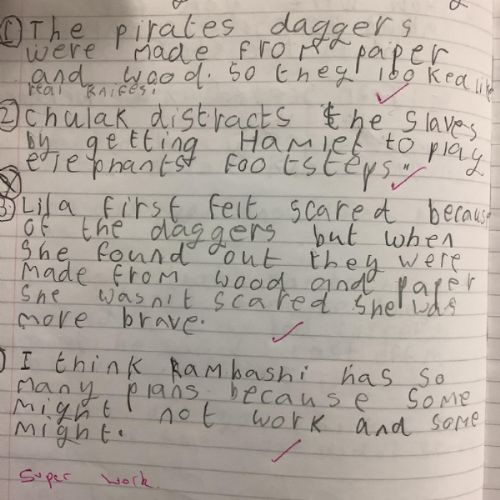 ① The pirates daggers
were made from paper
and wood. so they looked like
real knifes.
② Chulak distracts the slaves
by getting Hamlet to play
elephants footsteps."
③ Lila first felt scared because
of the daggers but when
she found out they were
made from wood and paper
she wasn't scared she was
more brave.
I think Rambashi has so
many plans because some
might not work and some
might.
Super work.